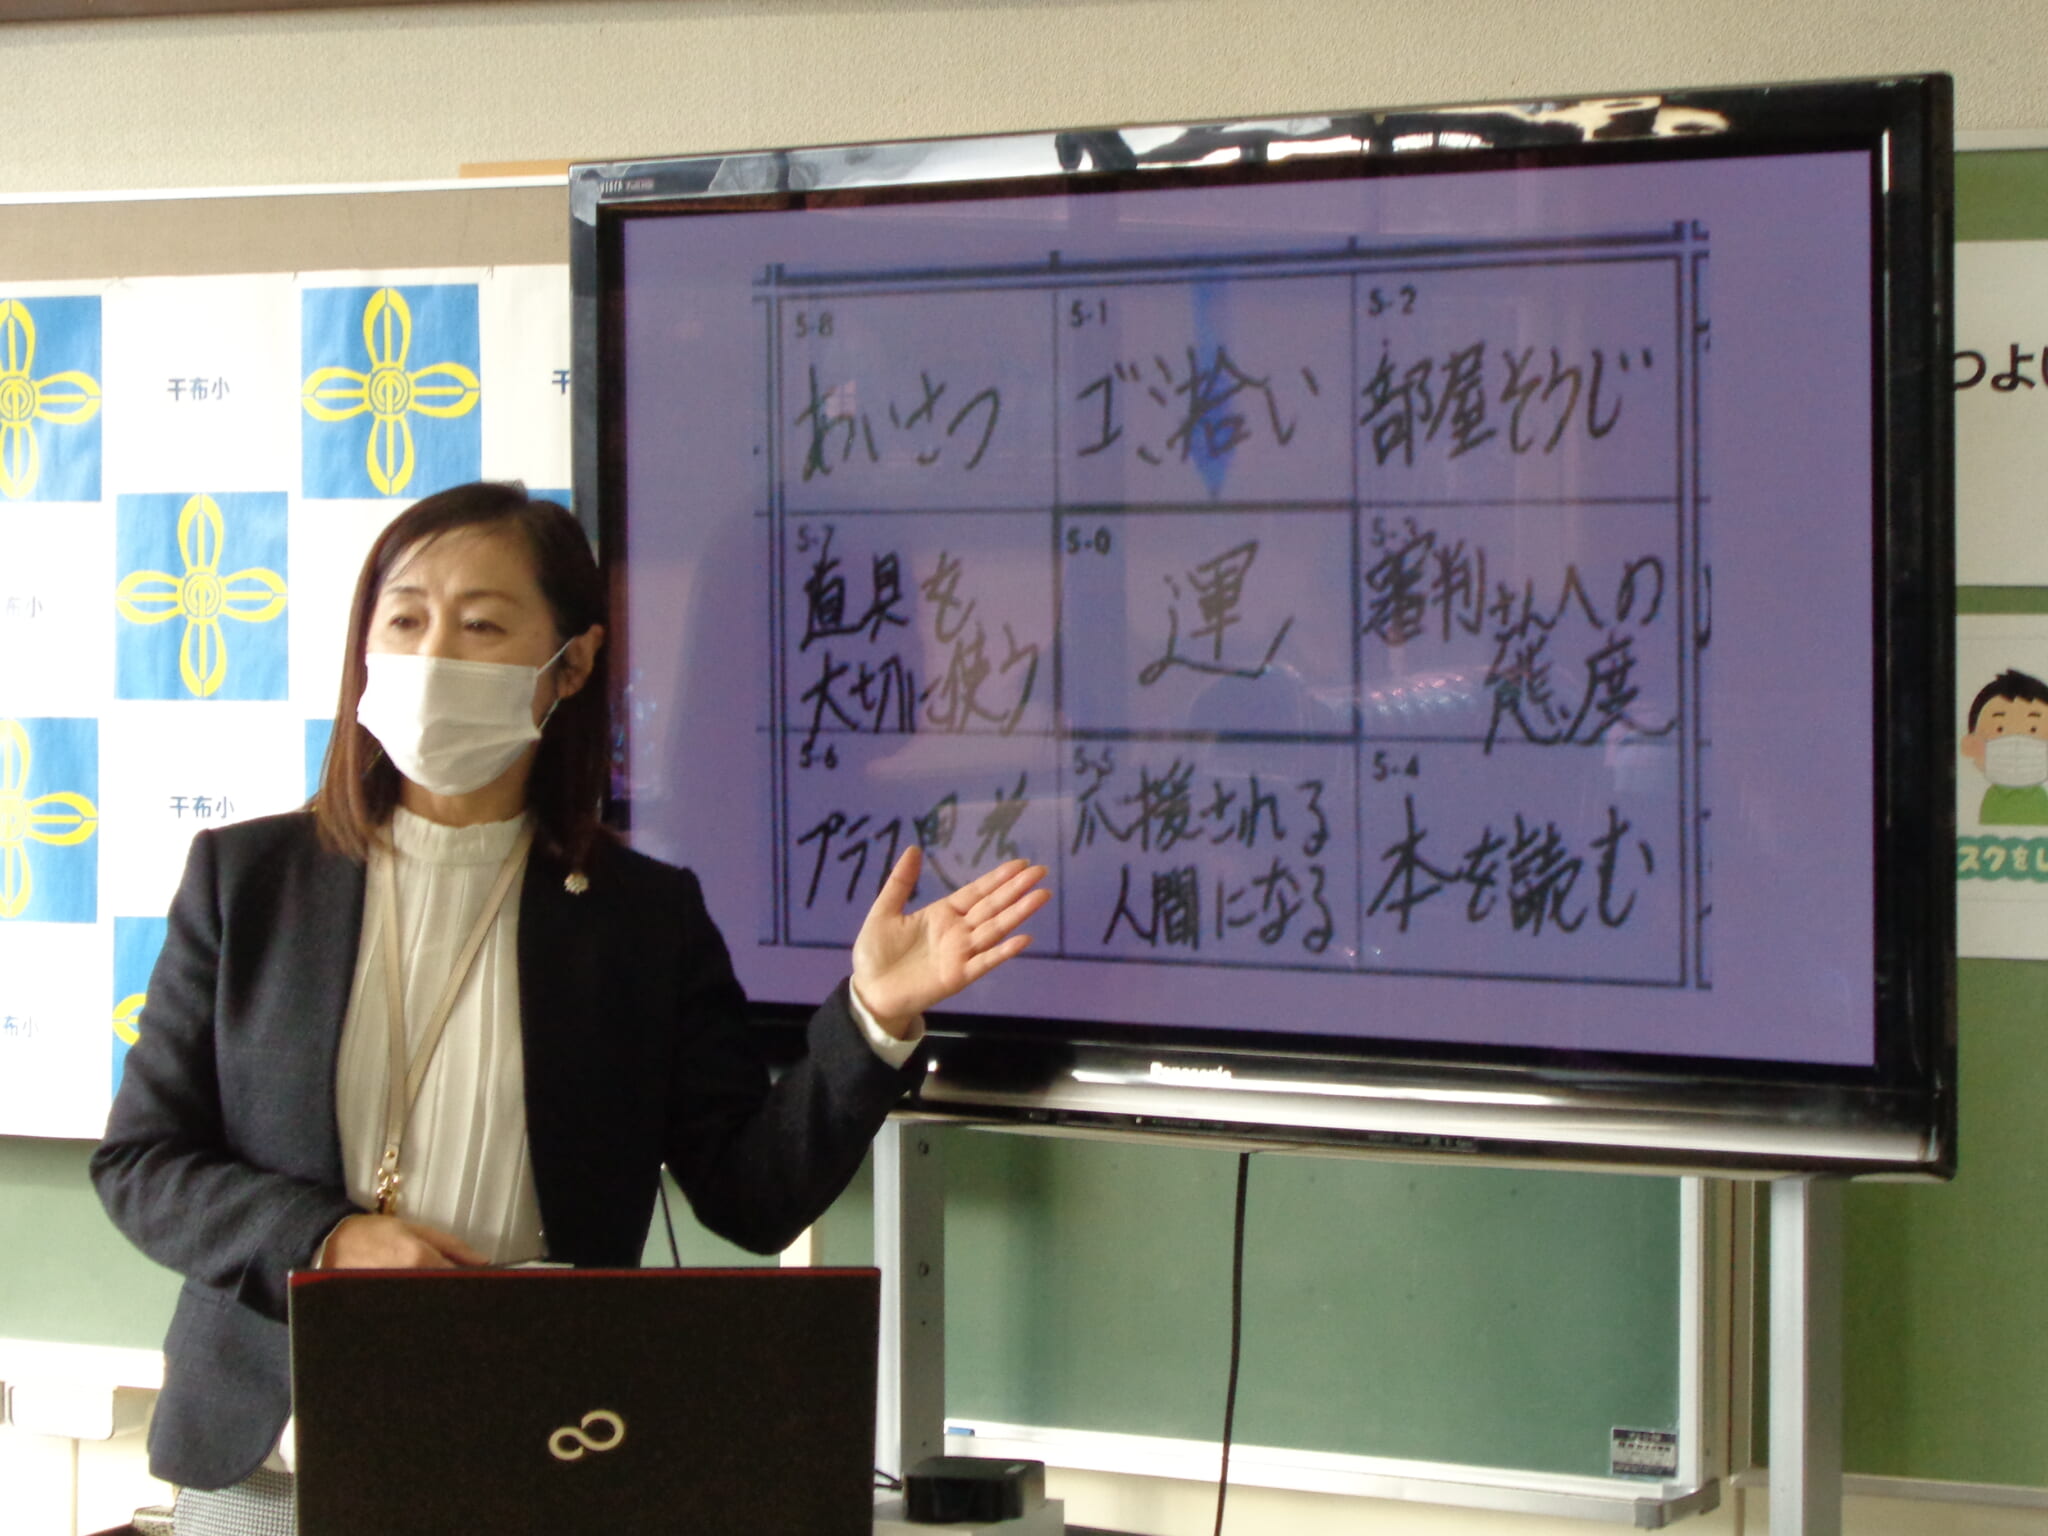 VIERA
つよい
干布小
干
布小
干布小
布小
5-8
あいさつ
5-1
ゴミ拾い
5-2
部屋そうじ
5-7
道具を
大切に使う
5-0
運
5-3
審判さんへの
態度
5-6
プラス思考
5-5
応援される
人間になる
5-4
本を読む
Panasonic
スクをし